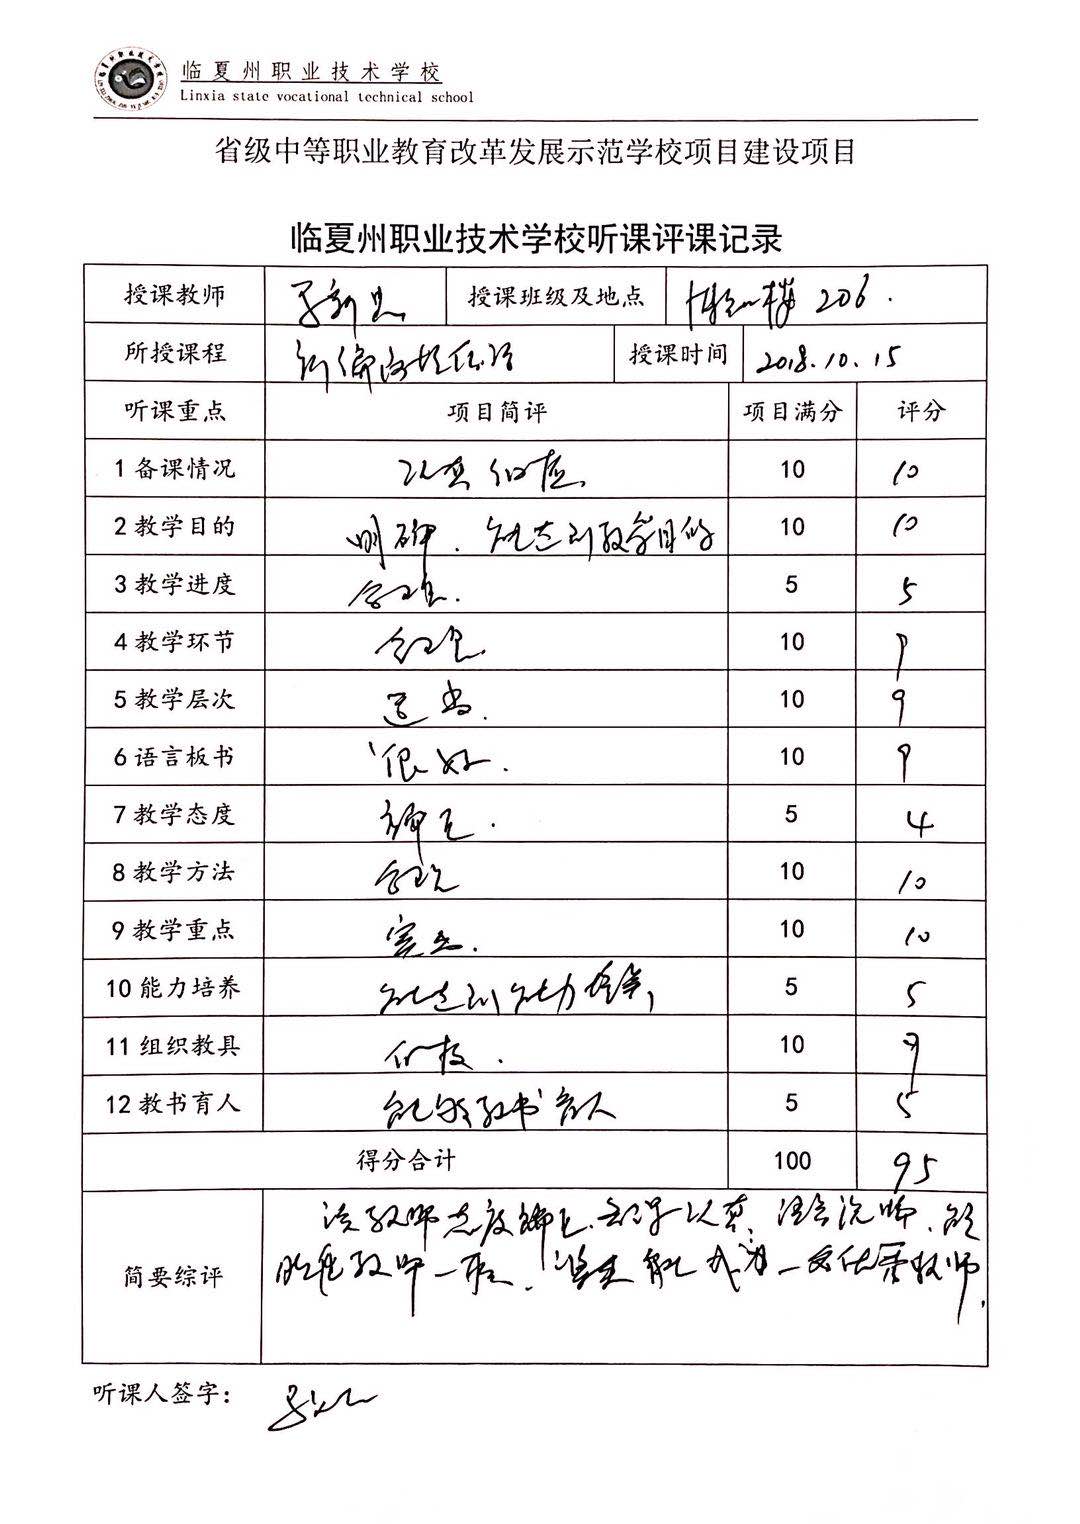 临夏州职业技术学校
Linxia state vocational technical school
省级中等职业教育改革发展示范学校项目建设项目
临夏州职业技术学校听课评课记录
授课教师 授课班级及地点 楼 206.
所授课程 授课时间 2018.10.15
听课重点 项目简评 项目满分 评分
1 备课情况 认真 10 10
2 教学目的 明确. 能达到教学目的 10 10
3 教学进度 合理. 5 5
4 教学环节 合理. 10 9
5 教学层次 适当. 10 9
6 语言板书 很好. 10 9
7 教学态度 端正. 5 4
8 教学方法 合理 10 10
9 教学重点 突出. 10 10
10 能力培养 能达到能力培养, 5 5
11 组织教具 10 9
12 教书育人 能够教书育人 5 5
得分合计 100 95
简要综评 该教师态度端正. 认真.
教师 成为一名优秀教师.
听课人签字: